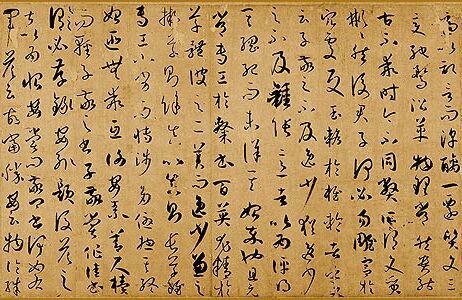 適以記言而淳醨一遷質文三
變馳騖沿革物理常然貴能
古不乖時今不同弊所謂文質
彬彬然後君子何必易雕宮於
穴處反玉輅於椎輪者乎又
云子敬之不及逸少猶逸少之
不及鍾張意者以為評得
其綱紀而未詳其始卒也且元
常專工於隸書百英尤精於
草體彼之二美而逸少兼之
擬草則餘真比真則長草雖
專工小劣而博涉多優揔其終
始匪無乖互謝安素善尺牘
而輕子敬之書子敬嘗作佳書
與之謂必存錄安輒題後答之甚
以為恨安嘗問敬卿書何如右
軍答云故當勝安云物論殊